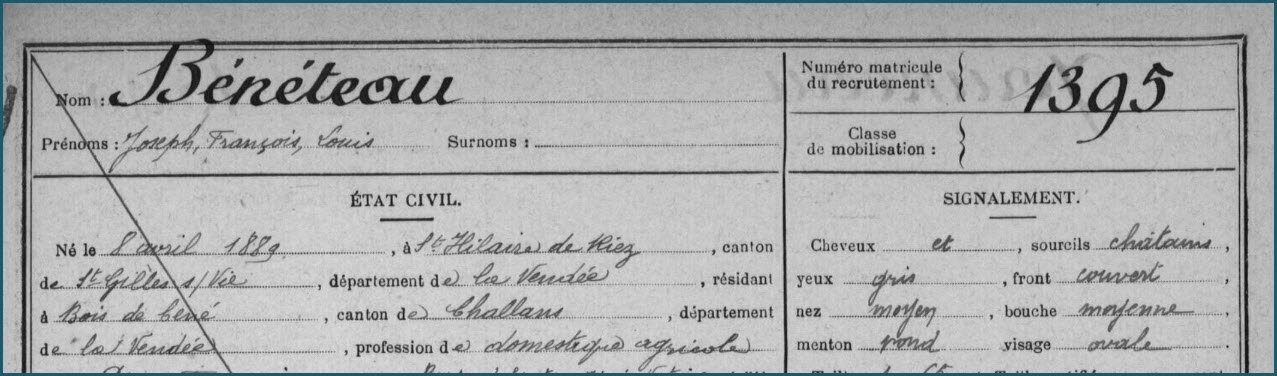 Nom : Bénéteau
Numéro matricule du recrutement : 1395
Prénoms : Joseph, François, Louis Surnoms :
Classe de mobilisation :
ÉTAT CIVIL.
Né le 8 avril 1889, à St Hilaire de Riez, canton
de St Gilles s/Vie, département de la Vendée, résidant
à Bois de Céné, canton de Challans, département
de la Vendée, profession de domestique agricole
SIGNALEMENT.
Cheveux et, sourcils châtains,
yeux gris, front couvert,
nez moyen, bouche moyenne
menton rond visage ovale